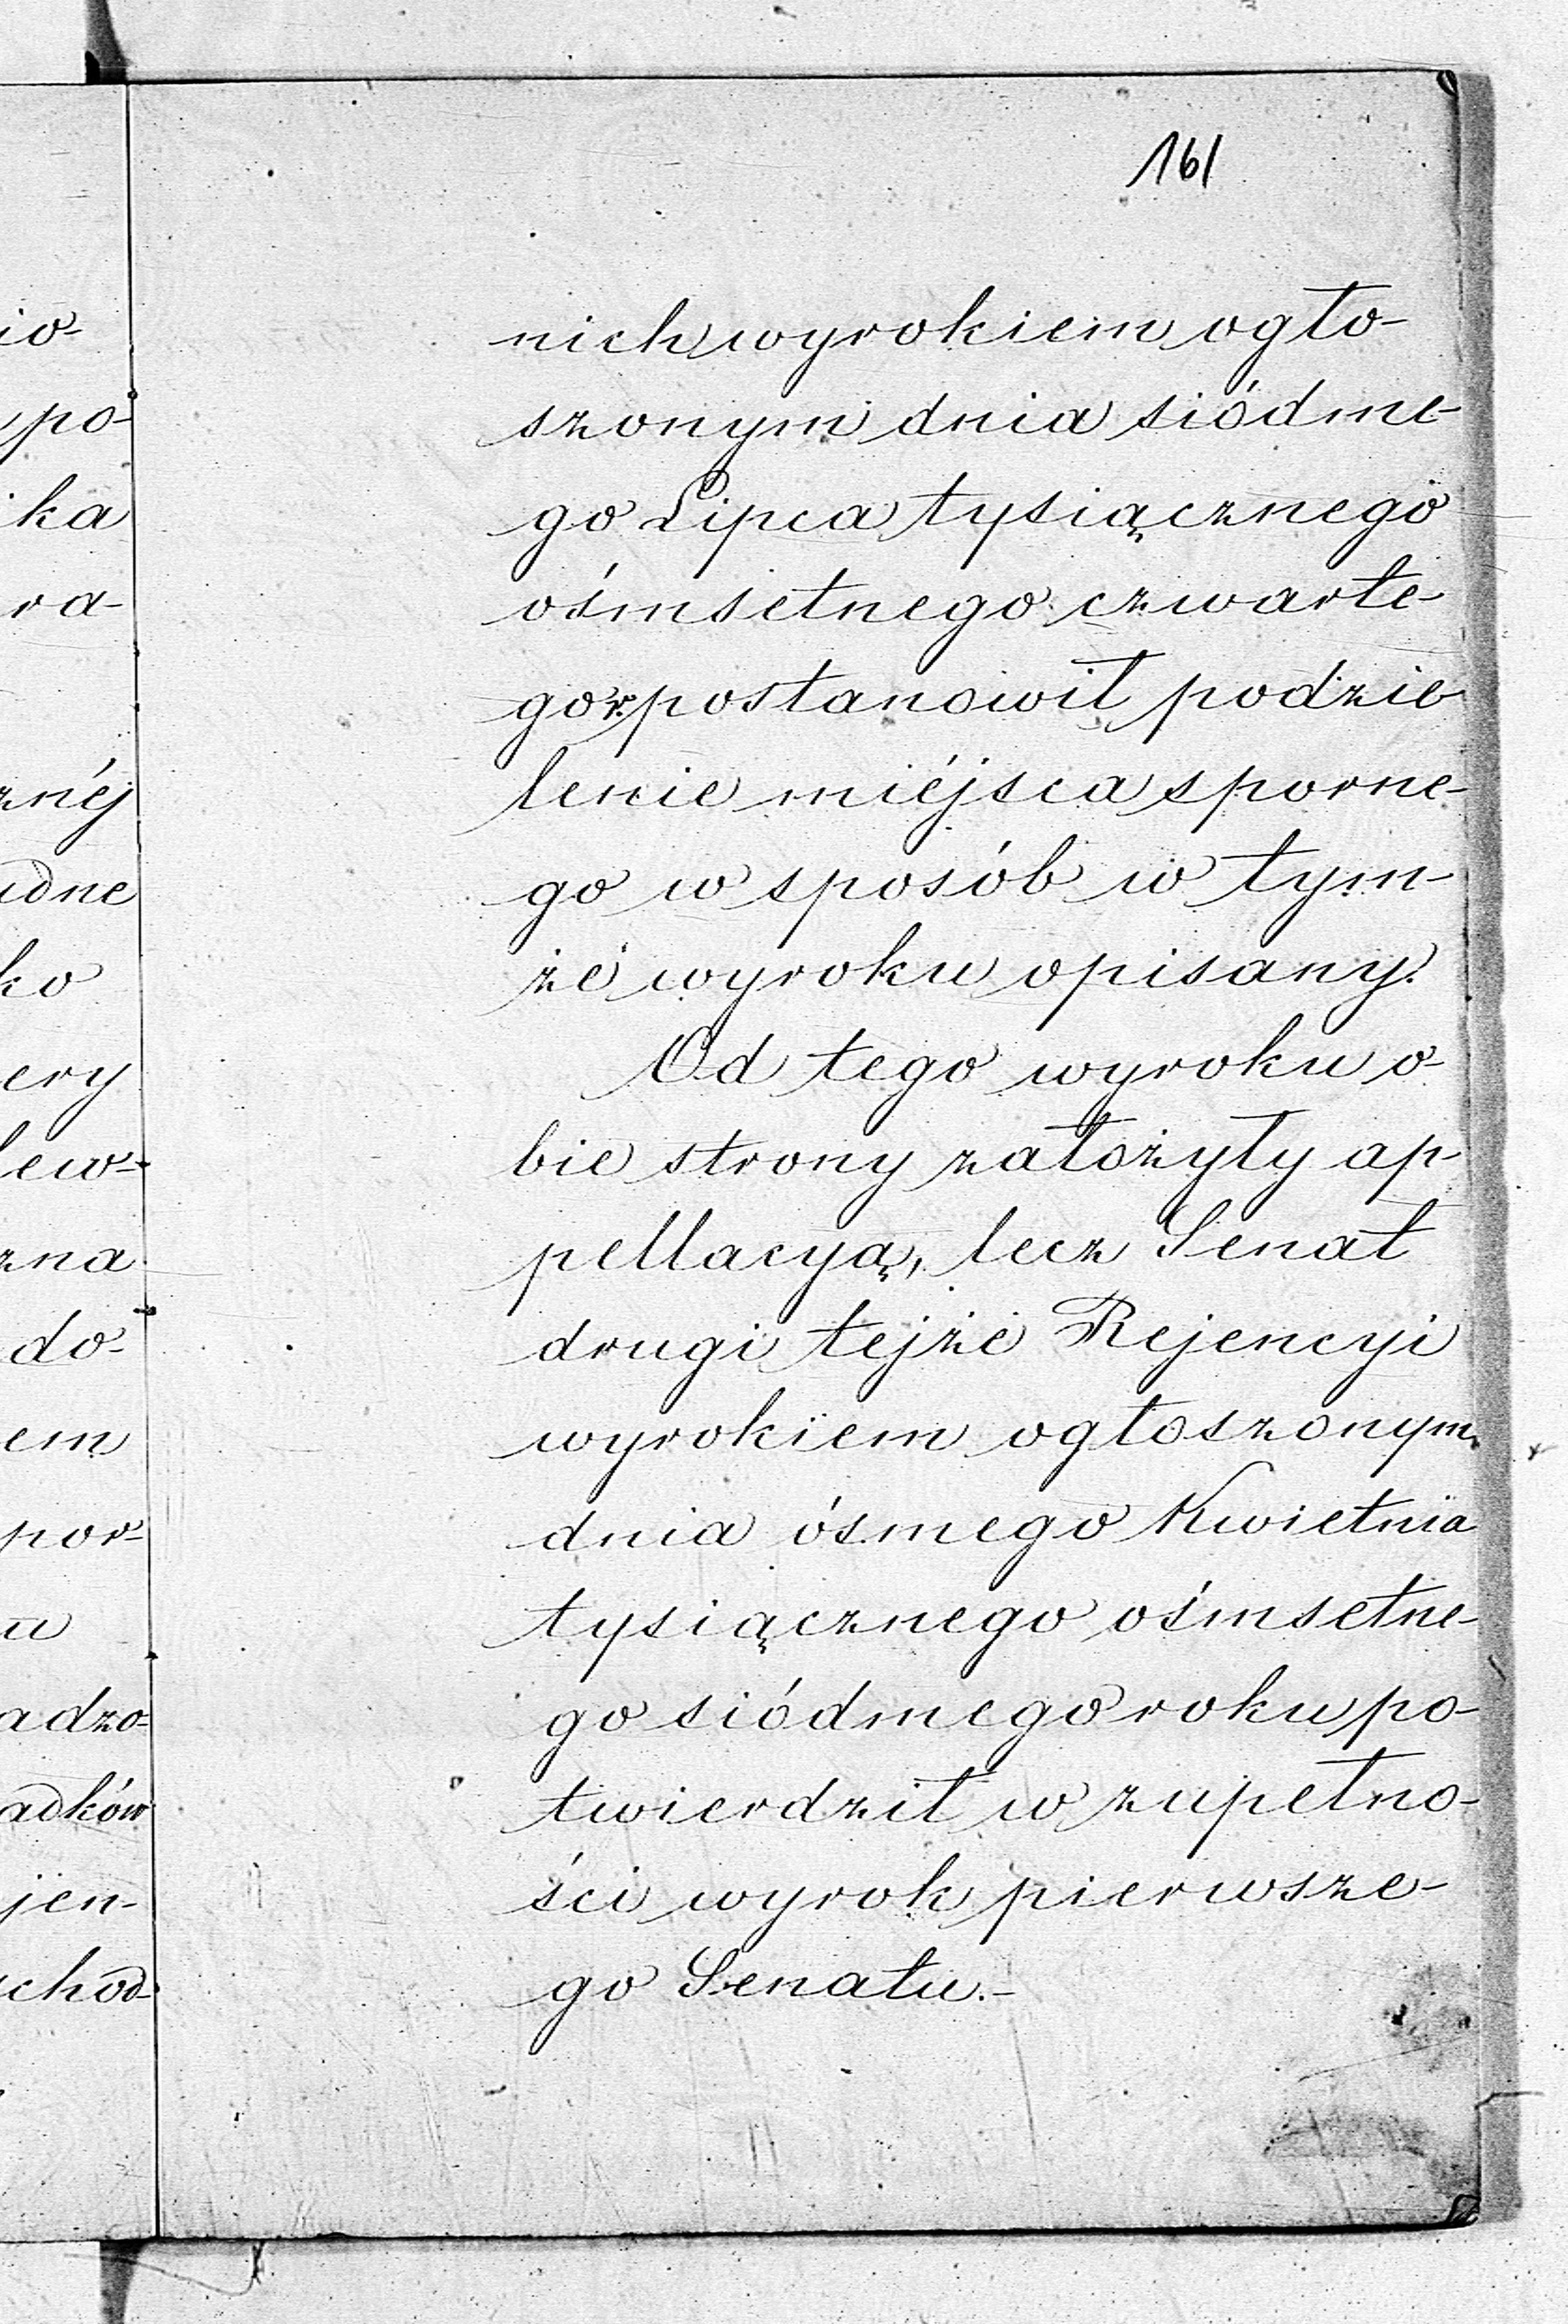 161
nich wyrokiem ogło-
szonym dnia siódme-
go Lipca tysiącznego
ośmsetnego czwarte-
go r. postanowił podzie-
lenie miéjsca sporne-
go w sposób w tym-
że wyroku opisany.
Od tego wyroku o-
bie strony założyły ap-
pellacyą, lecz Senat
drugi tejże Rejencyi
wyrokiem ogłoszonym
dnia ósmego Kwietnia
tysiącznego ośmsetne-
go siódmego roku po-
twierdził w zupełno-
ści wyrok pierwsze-
go Senatu.-
io-
po-
ka
ra-
znéj
udne
ko
ery
lew-
zna
do-
em
por-
u
adzo-
adków
jen-
chod-